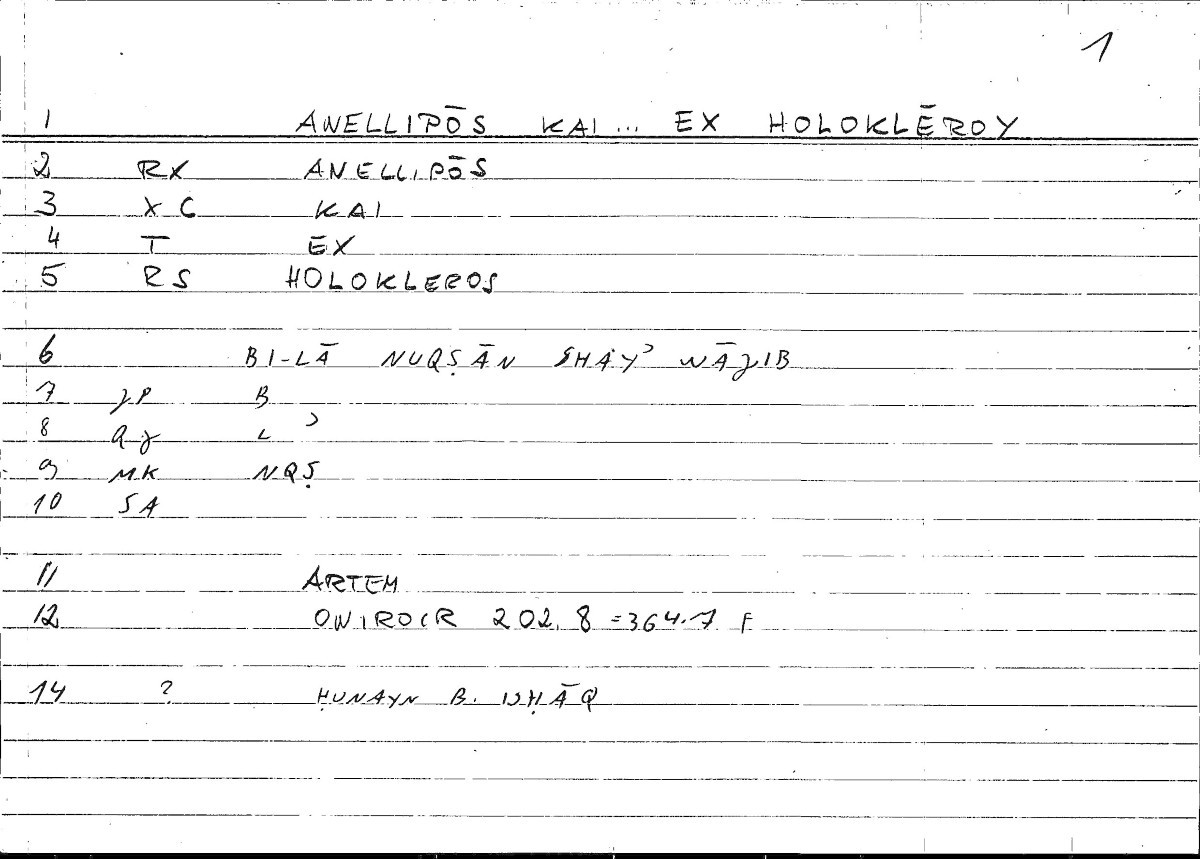 1
1 ANELLIPŌS KAI... EX HOLOKLĒROY
2 RX ANELLIPŌS
3 XC KAI
4 T EX
5 RS HOLOKLEROS
6 BI-LĀ NUQṢĀN SHAYʾ WĀJIB
7 JP B
8 QJ Lʾ
9 MK NQṢ
10 SA
11 ARTEM
12 ONIROCR 202.8 = 364.7 F
14 ? ḤUNAYN B. ISḤĀQ